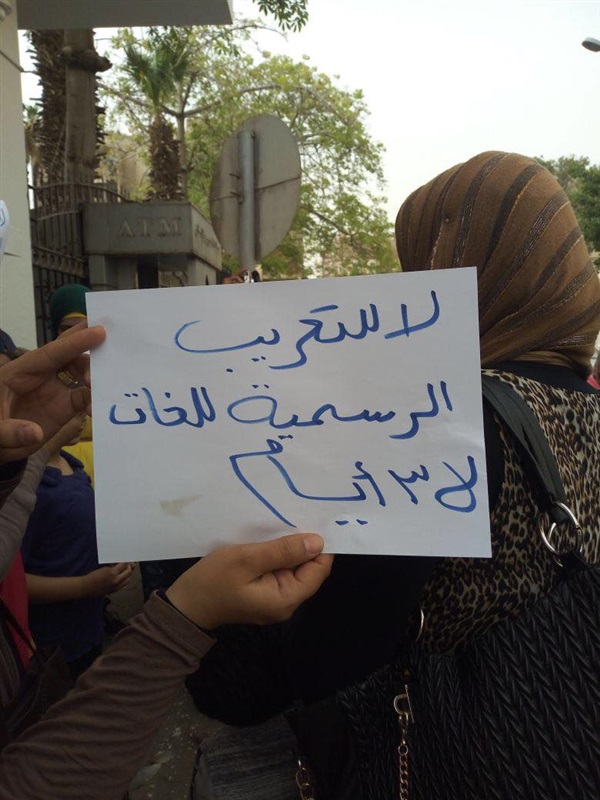 ATM
لا للتعريب
الرسمية للغات
لا ٣ أيام